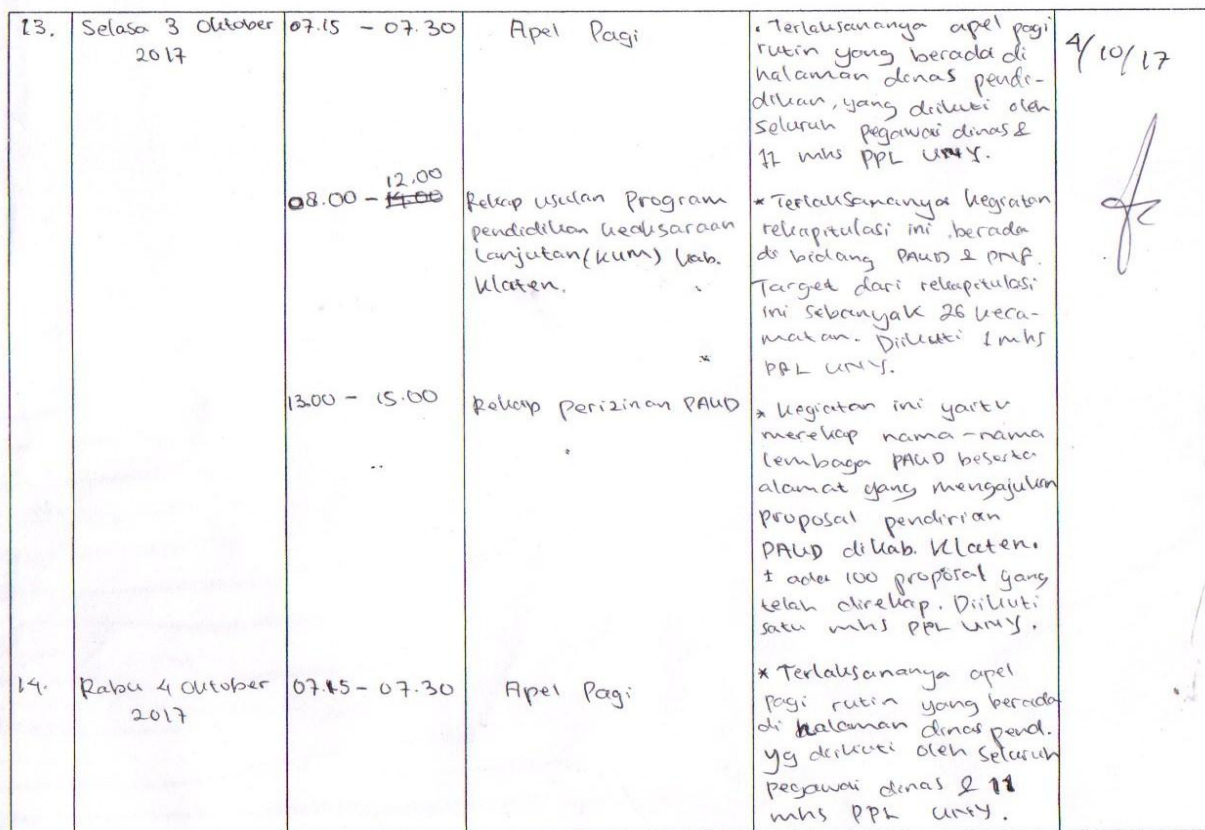 13.
Selasa 3 Oktober
2017
07.15 – 07.30
Apel Pagi
• Terlaksananya apel pagi
rutin yang berada di
halaman dinas pendi-
dikan, yang diikuti oleh
seluruh pegawai dinas &
11 mhs PPL UNY.
4/10/17
12.00
08.00 – 14.00
Rekap usulan Program
pendidikan keaksaraan
Lanjutan (KUM) kab.
Klaten.
* Terlaksananya kegiatan
rekapitulasi ini berada
di bidang PAUD & PNF.
Target dari rekapitulasi
ini sebanyak 26 keca-
matan. Diikuti 1 mhs
PPL UNY.
13.00 – 15.00
Rekap perizinan PAUD
* Kegiatan ini yaitu
merekap nama-nama
lembaga PAUD beserta
alamat yang mengajukan
proposal pendirian
PAUD dikab. Klaten.
± ada 100 proposal yang
telah direkap. Diikuti
satu mhs PPL UNY.
14.
Rabu 4 Oktober
2017
07.15 – 07.30
Apel Pagi
* Terlaksananya apel
pagi rutin yang berada
di halaman dinas pend.
yg diikuti oleh seluruh
pegawai dinas & 11
mhs PPL UNY.